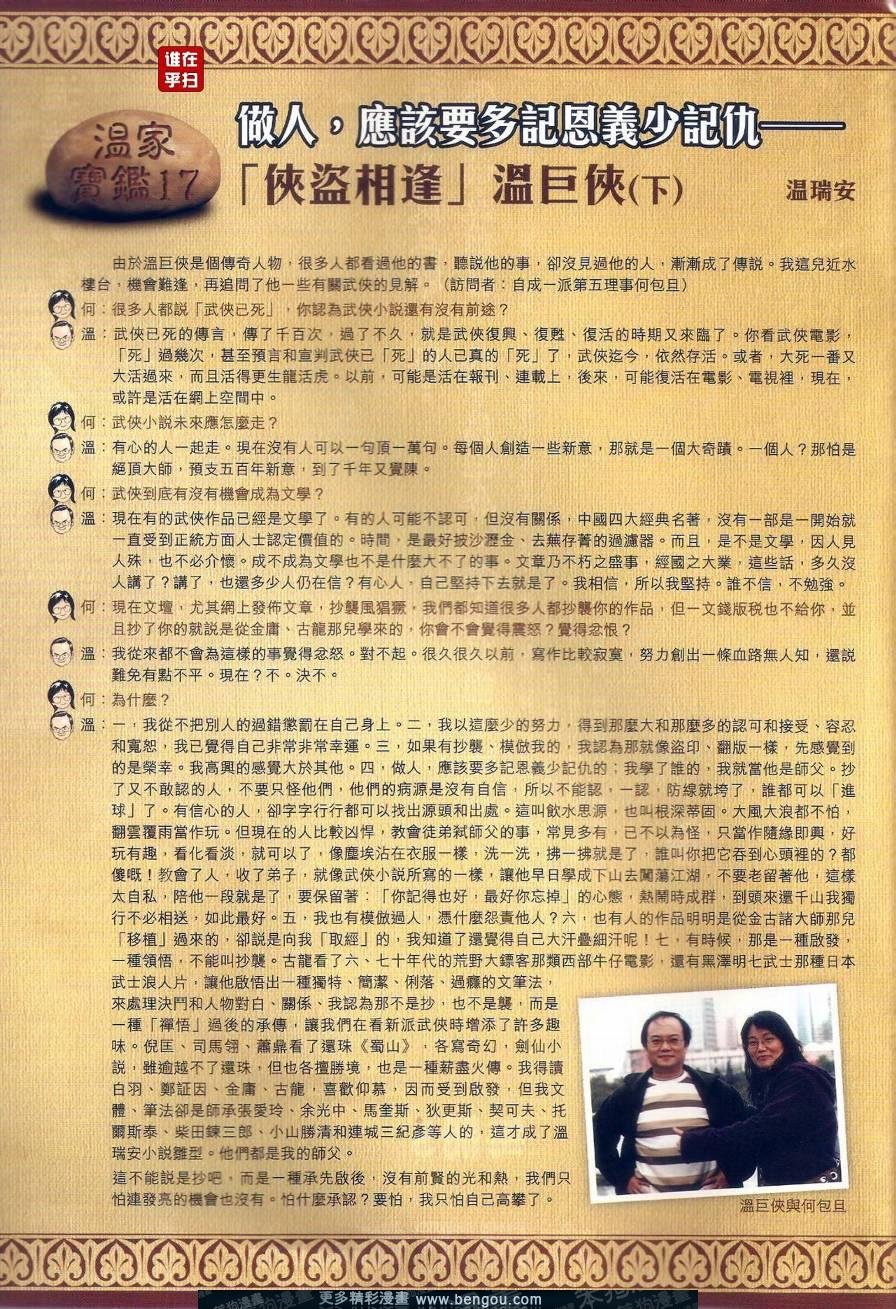 谁在
乎扫
温家
寶鑑17
做人，應該要多記恩義少記仇——
「俠盜相逢」溫巨俠(下)
温瑞安
由於溫巨俠是個傳奇人物，很多人都看過他的書，聽説他的事，卻沒見過他的人，漸漸成了傳説。我這兒近水
樓台，機會難逢，再追問了他一些有關武俠的見解。（訪問者：自成一派第五理事何包旦）
何：很多人都説「武俠已死」，你認為武俠小説還有沒有前途？
溫：武俠已死的傳言，傳了千百次，過了不久，就是武俠復興、復甦、復活的時期又來臨了。你看武俠電影，
「死」過幾次，甚至預言和宣判武俠已「死」的人已真的「死」了，武俠迄今，依然存活。或者，大死一番又
大活過來，而且活得更生龍活虎。以前，可能是活在報刊、連載上，後來，可能復活在電影、電視裡，現在，
或許是活在網上空間中。
何：武俠小説未來應怎麼走？
溫：有心的人一起走。現在沒有人可以一句頂一萬句。每個人創造一些新意，那就是一個大奇蹟。一個人？那怕是
絕頂大師，預支五百年新意，到了千年又覺陳。
何：武俠到底有沒有機會成為文學？
溫：現在有的武俠作品已經是文學了。有的人可能不認可，但沒有關係，中國四大經典名著，沒有一部是一開始就
一直受到正統方面人士認定價值的。時間，是最好披沙瀝金、去蕪存菁的過濾器。而且，是不是文學，因人見
人殊，也不必介懷。成不成為文學也不是什麼大不了的事。文章乃不朽之盛事，經國之大業，這些話，多久沒
人講了？講了，也還多少人仍在信？有心人，自己堅持下去就是了。我相信，所以我堅持。誰不信，不勉強。
何：現在文壇，尤其網上發佈文章，抄襲風猖獗，我們都知道很多人都抄襲你的作品，但一文錢版税也不給你，並
且抄了你的就説是從金庸、古龍那兒學來的，你會不會覺得震怒？覺得忿恨？
溫：我從來都不會為這樣的事覺得忿怒。對不起。很久很久以前，寫作比較寂寞，努力創出一條血路無人知，還説
難免有點不平。現在？不。決不。
何：為什麼？
溫：一，我從不把別人的過錯懲罰在自己身上。二，我以這麼少的努力，得到那麼大和那麼多的認可和接受、容忍
和寬恕，我已覺得自己非常非常幸運。三，如果有抄襲、模倣我的，我認為那就像盜印、翻版一樣，先感覺到
的是榮幸。我高興的感覺大於其他。四，做人，應該要多記恩義少記仇的；我學了誰的，我就當他是師父。抄
了又不敢認的人，不要只怪他們，他們的病源是沒有自信，所以不能認，一認，防線就垮了，誰都可以「進
球」了。有信心的人，卻字字行行都可以找出源頭和出處。這叫飲水思源，也叫根深蒂固。大風大浪都不怕，
翻雲覆雨當作玩。但現在的人比較凶悍，教會徒弟弒師父的事，常見多有，已不以為怪，只當作隨緣即興，好
玩有趣，看化看淡，就可以了，像塵埃沾在衣服一樣，洗一洗，拂一拂就是了，誰叫你把它吞到心頭裡的？都
傻嘅！教會了人，收了弟子，就像武俠小説所寫的一樣，讓他早日學成下山去闖蕩江湖，不要老留著他，這樣
太自私，陪他一段就是了，要保留著：「你記得也好，最好你忘掉」的心態，熱鬧時成群，到頭來還千山我獨
行不必相送，如此最好。五，我也有模倣過人，憑什麼怨責他人？六，也有人的作品明明是從金古諸大師那兒
「移植」過來的，卻説是向我「取經」的，我知道了還覺得自己大汗疊細汗呢！七，有時候，那是一種啟發，
一種領悟，不能叫抄襲。古龍看了六、七十年代的荒野大鏢客那類西部牛仔電影，還有黑澤明七武士那種日本
武士浪人片，讓他啟悟出一種獨特、簡潔、俐落、過癮的文筆法，
來處理決鬥和人物對白、關係、我認為那不是抄，也不是襲，而是
一種「禪悟」過後的承傳，讓我們在看新派武俠時增添了許多趣
味。倪匡、司馬翎、蕭鼎看了還珠《蜀山》，各寫奇幻，劍仙小
説，雖逾越不了還珠，但也各擅勝境，也是一種薪盡火傳。我得讀
白羽、鄭証因、金庸、古龍，喜歡仰慕，因而受到啟發，但我文
體、筆法卻是師承張愛玲、余光中、馬奎斯、狄更斯、契可夫、托
爾斯泰、柴田鍊三郎、小山勝清和連城三紀彥等人的，這才成了溫
瑞安小説雛型。他們都是我的師父。
這不能説是抄吧，而是一種承先啟後，沒有前賢的光和熱，我們只
怕連發亮的機會也沒有。怕什麼承認？要怕，我只怕自己高攀了。
溫巨俠與何包旦
更多精彩漫畫 www.bengou.com